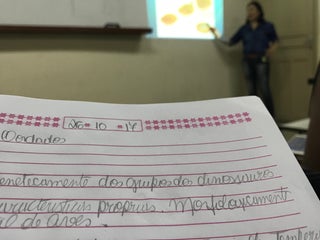 26 - 10 - 17
Cordados
eneticamente dos grupos dos dinossauros
características próprias. Morfologicamente
al de Aves.